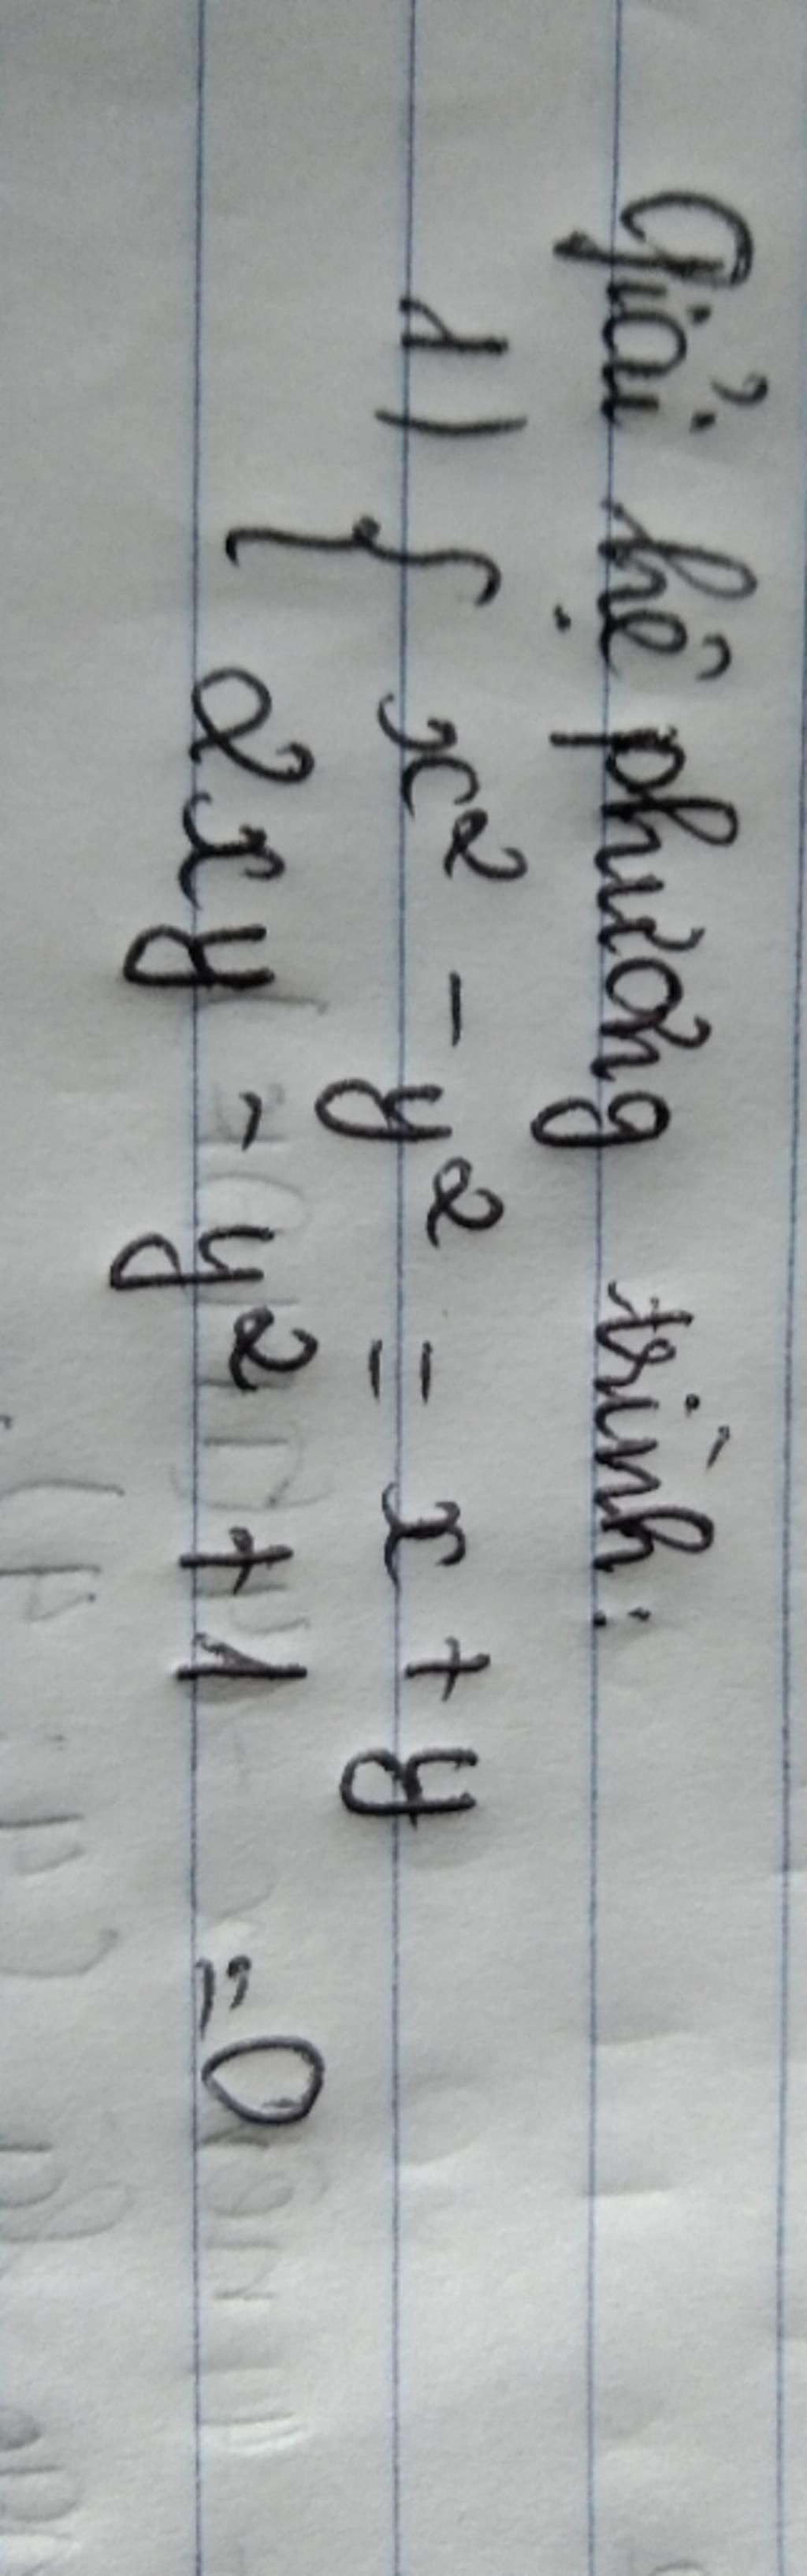 Giải hệ phương trình:
1) { x² - y² = x + y
2xy - y² + 1 = 0